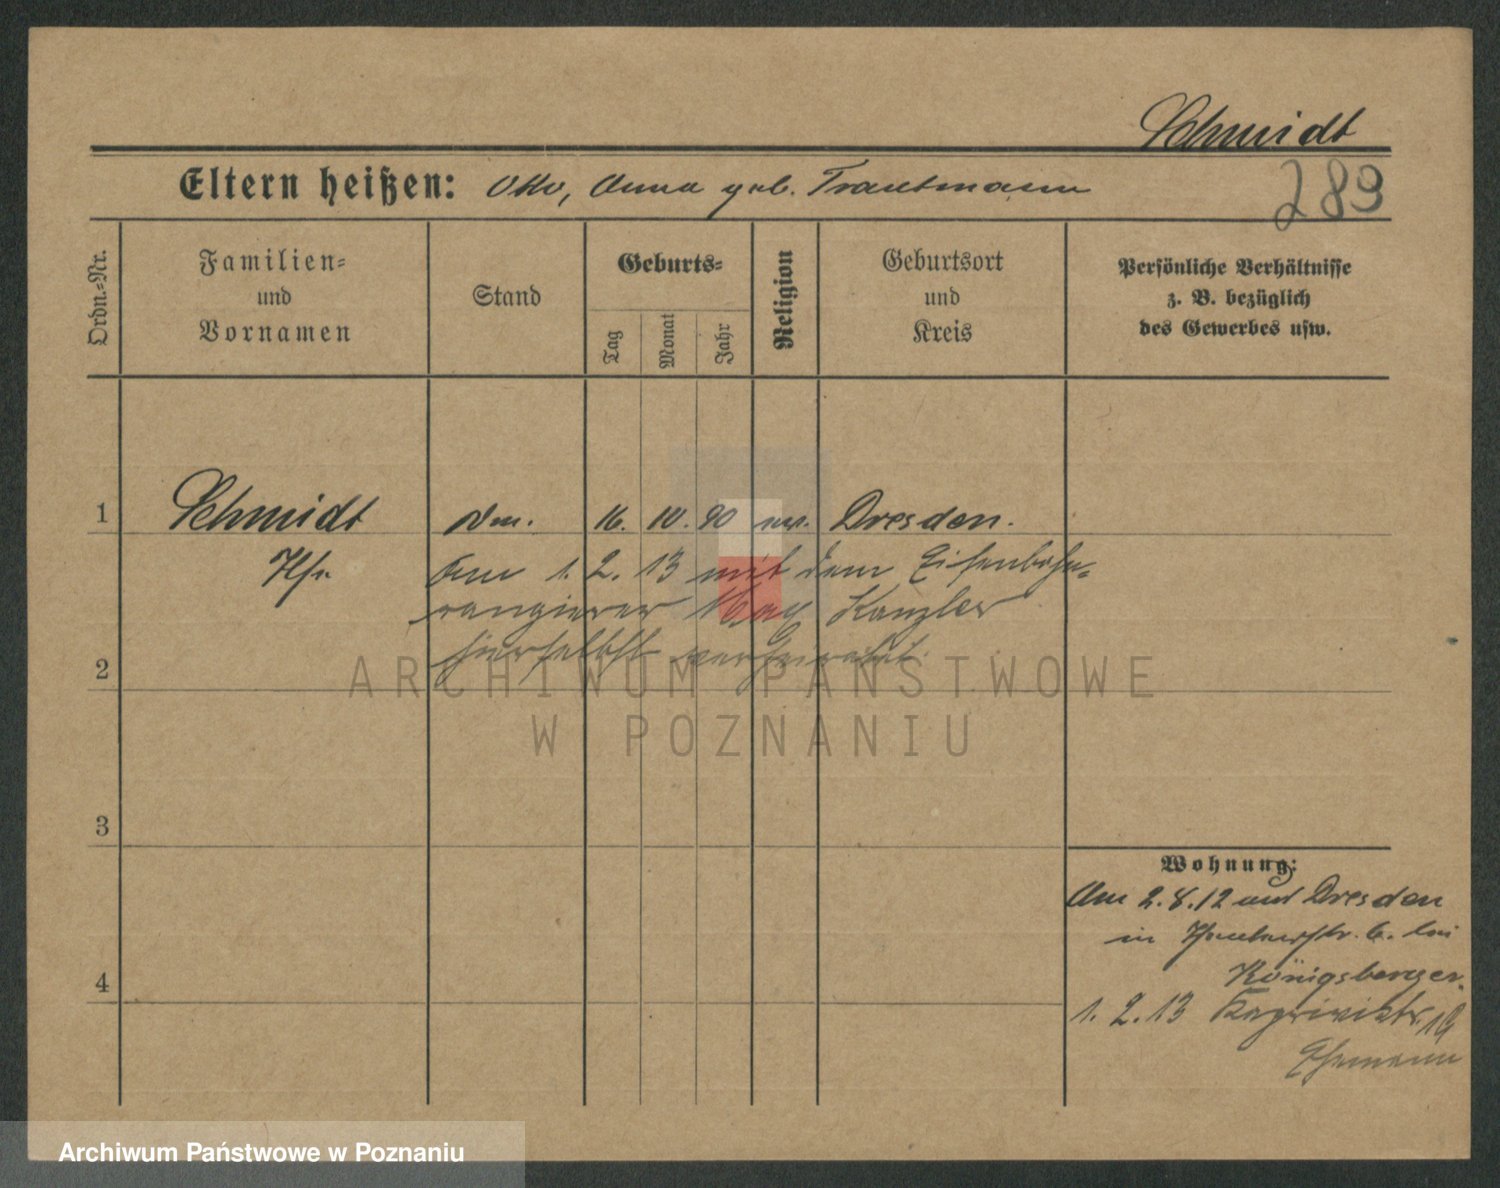 Schmidt
289
Eltern heißen: Otto, Anna geb. Trautmann
Ordn.-Nr.
Familien-
und
Vornamen
Stand
Geburts-
Tag
Monat
Jahr
Religion
Geburtsort
und
Kreis
Persönliche Verhältnisse
z. B. bezüglich
des Gewerbes usw.
1 Schmidt 16. 10. 90 Dresden.
Am 1. 2. 13 mit dem Eisenbahn-
rangierer Max Kanzler
hierselbst verheiratet.
2
3
4
Wohnung:
Am 2.8.12 aus Dresden
in 6. bei
Königsberger.
1. 2. 13 19
Ehemann
ARCHIWUM PAŃSTWOWE
W POZNANIU
Archiwum Państwowe w Poznaniu